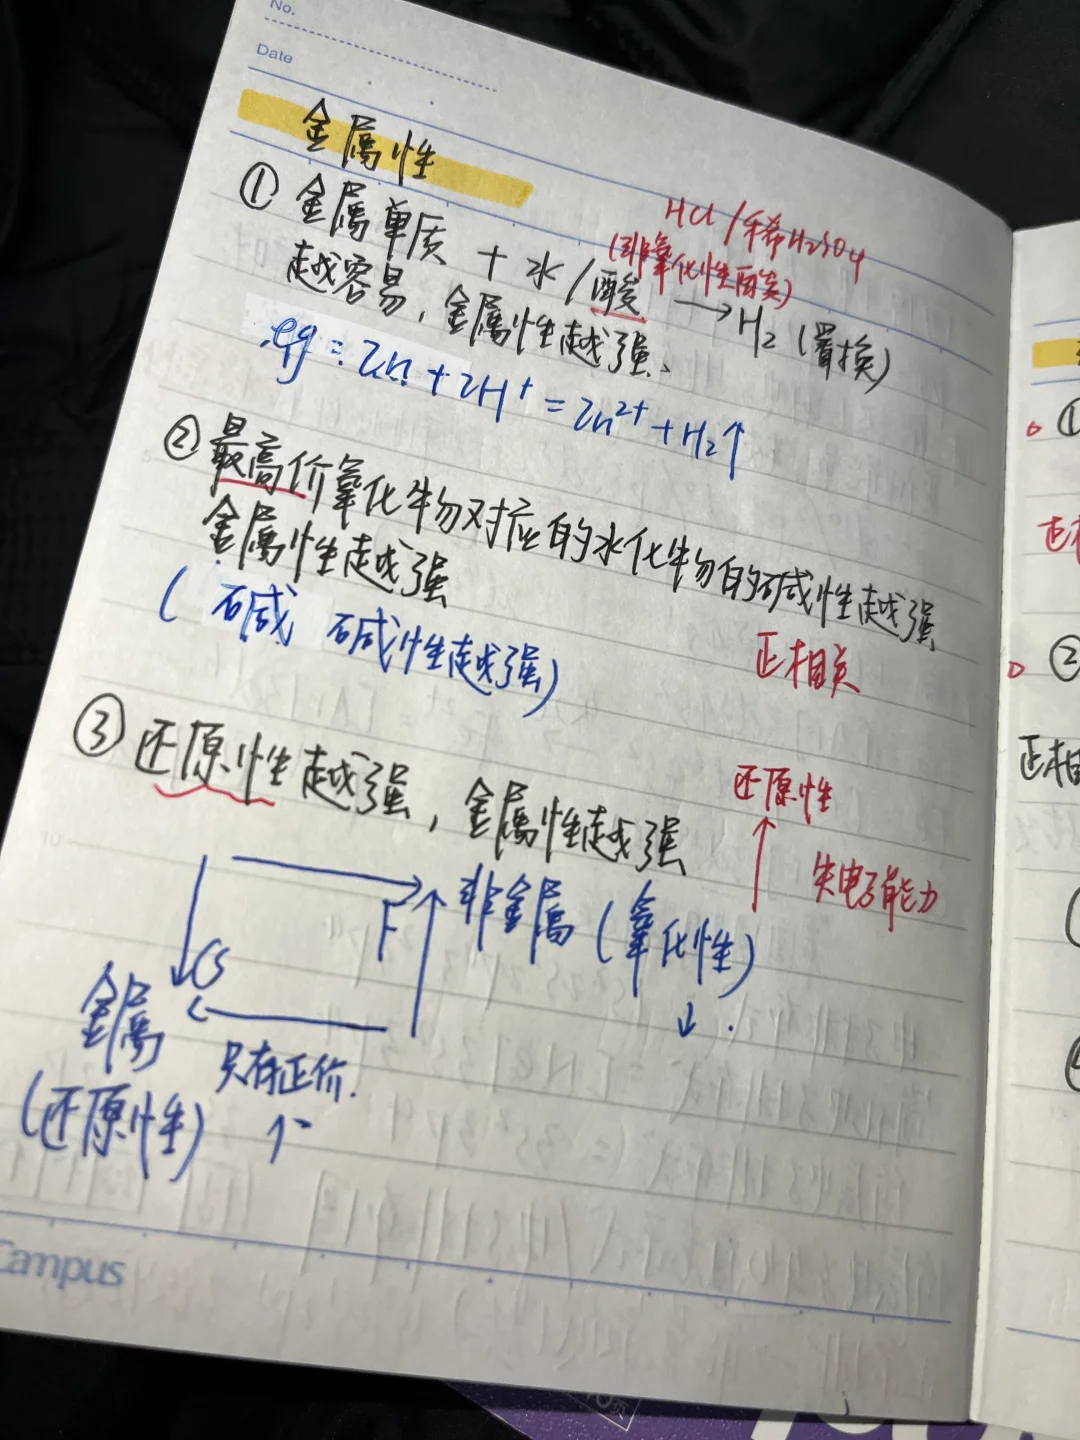 No.
Date
金属性
HCl/稀H₂SO₄
(非氧化性酸)
① 金属单质 + 水/酸 → H₂ (置换)
越容易,金属性越强、
eg: Zn + 2H⁺ = Zn²⁺ + H₂↑
② 最高价氧化物对应的水化物的碱性越强
金属性越强
(碱 碱性越强)
正相关
③ 还原性越强,金属性越强
还原性
↑ 失电子能力
F
非金属(氧化性)
↓
Cs
金属
(还原性)
只有正价.
↑
Campus
①
正相
②
正相